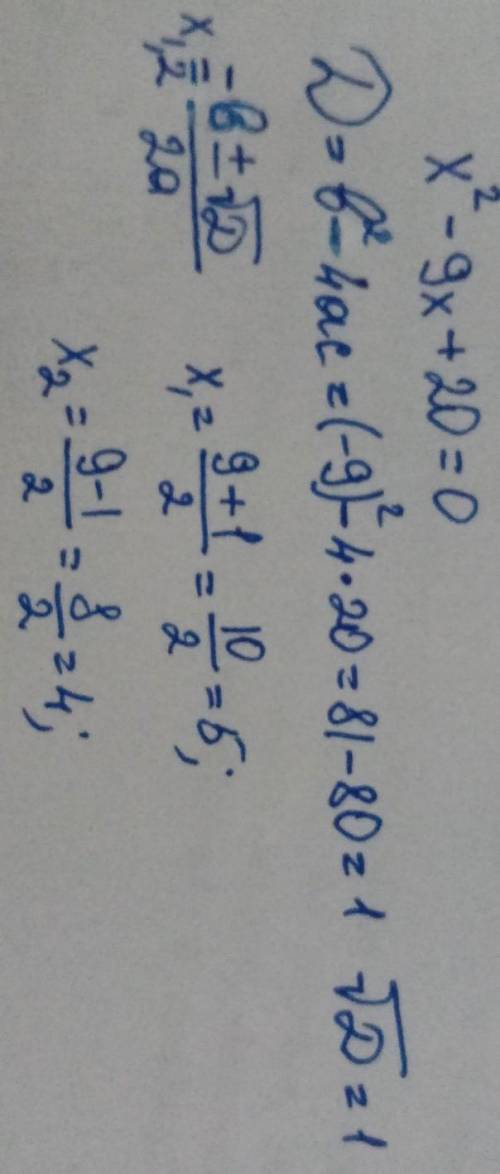 x² - 9x + 20 = 0
D = b² - 4ac = (-9)² - 4·20 = 81 - 80 = 1 √D = 1
x₁,₂ = (-b ± √D)/2a x₁ = (9+1)/2 = 10/2 = 5;
x₂ = (9-1)/2 = 8/2 = 4;